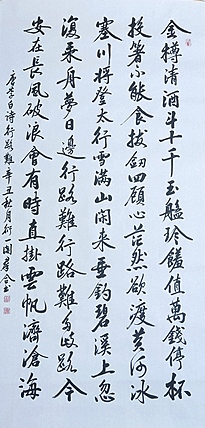 金樽清酒斗十千玉盤珍饈值萬錢停杯
投箸不能食拔劍四顧心茫然欲渡黃河冰
塞川將登太行雪滿山閒來垂釣碧溪上忽
復乘舟夢日邊行路難行路難多歧路今
安在長風破浪會有時直掛雲帆濟滄海
唐李白詩行路難辛丑秋月於一閣